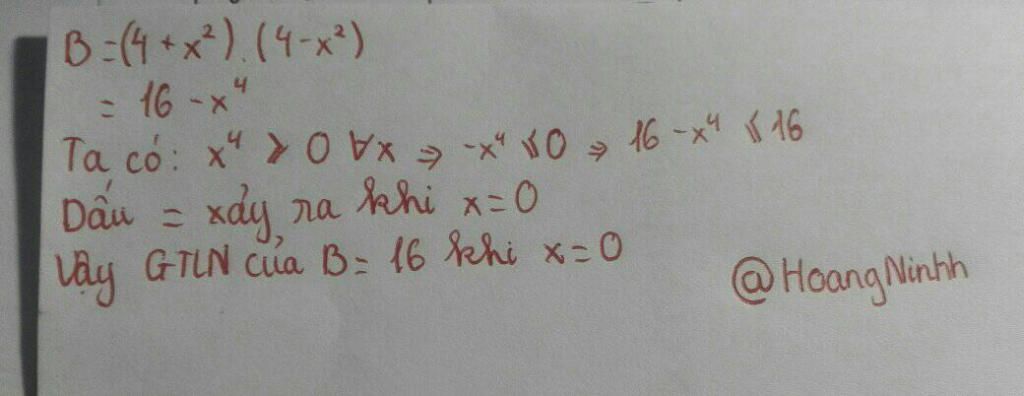 B = (4 + x²).(4 - x²)
= 16 - x⁴
Ta có: x⁴ ⩾ 0 ∀x ⇒ -x⁴ ⩽ 0 ⇒ 16 - x⁴ ⩽ 16
Dấu = xảy ra khi x = 0
Vậy GTLN của B = 16 khi x = 0
@HoangNinhh